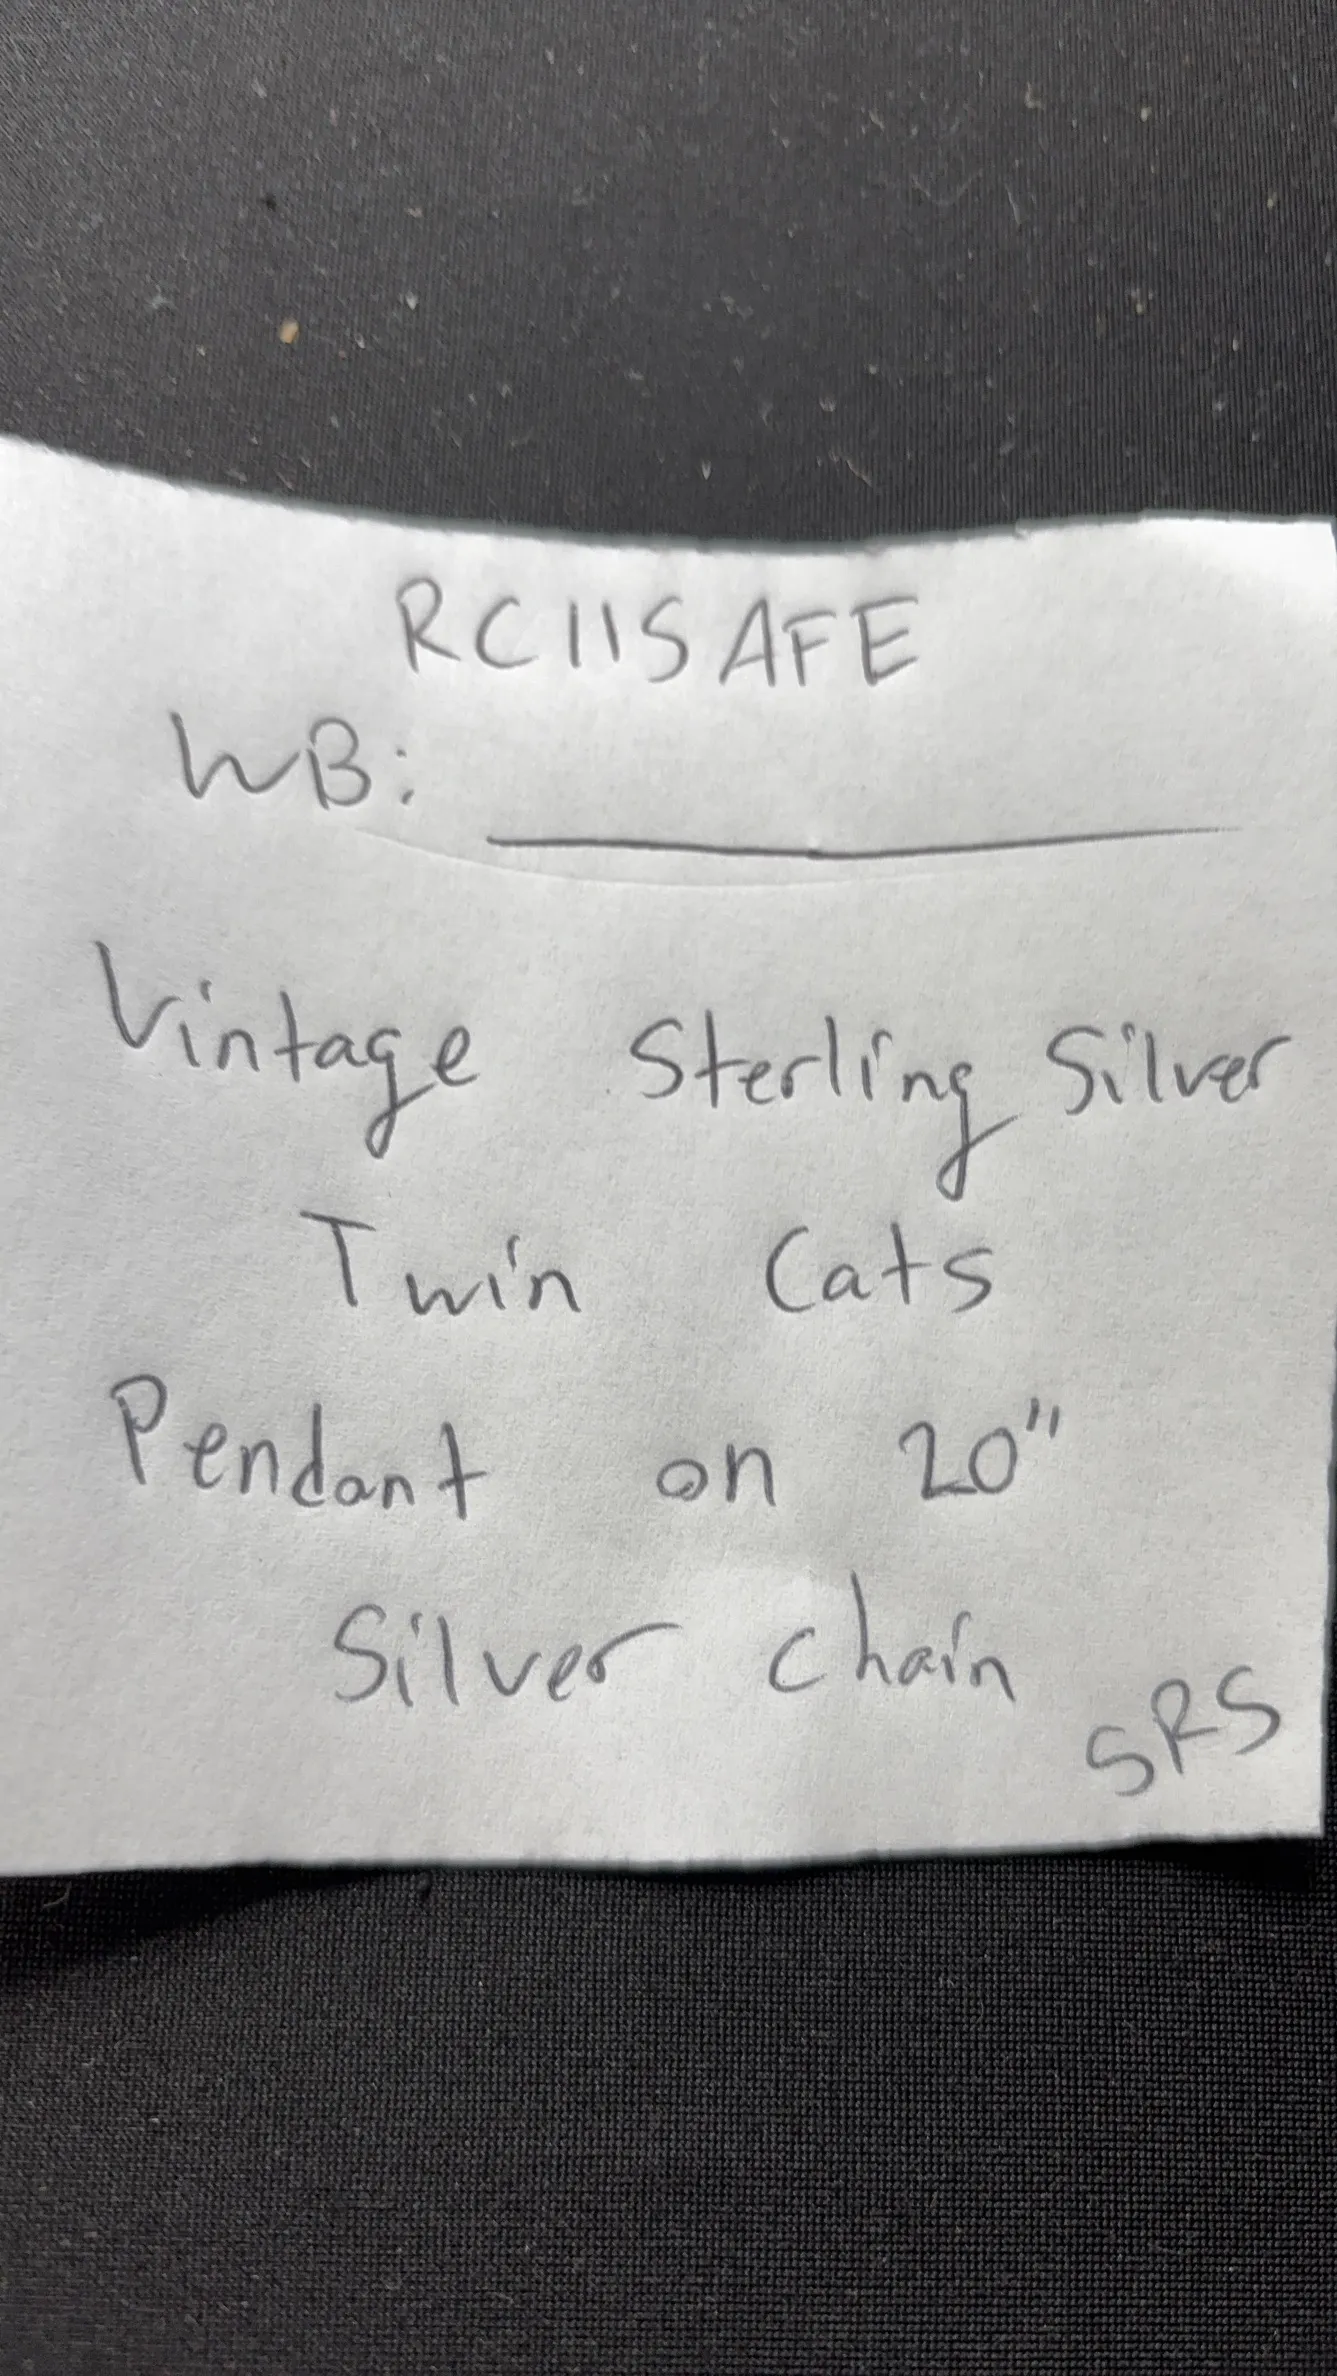 RC11SAFE
WB: ____________
Vintage Sterling Silver
Twin Cats
Pendant on 20"
Silver chain
SRS